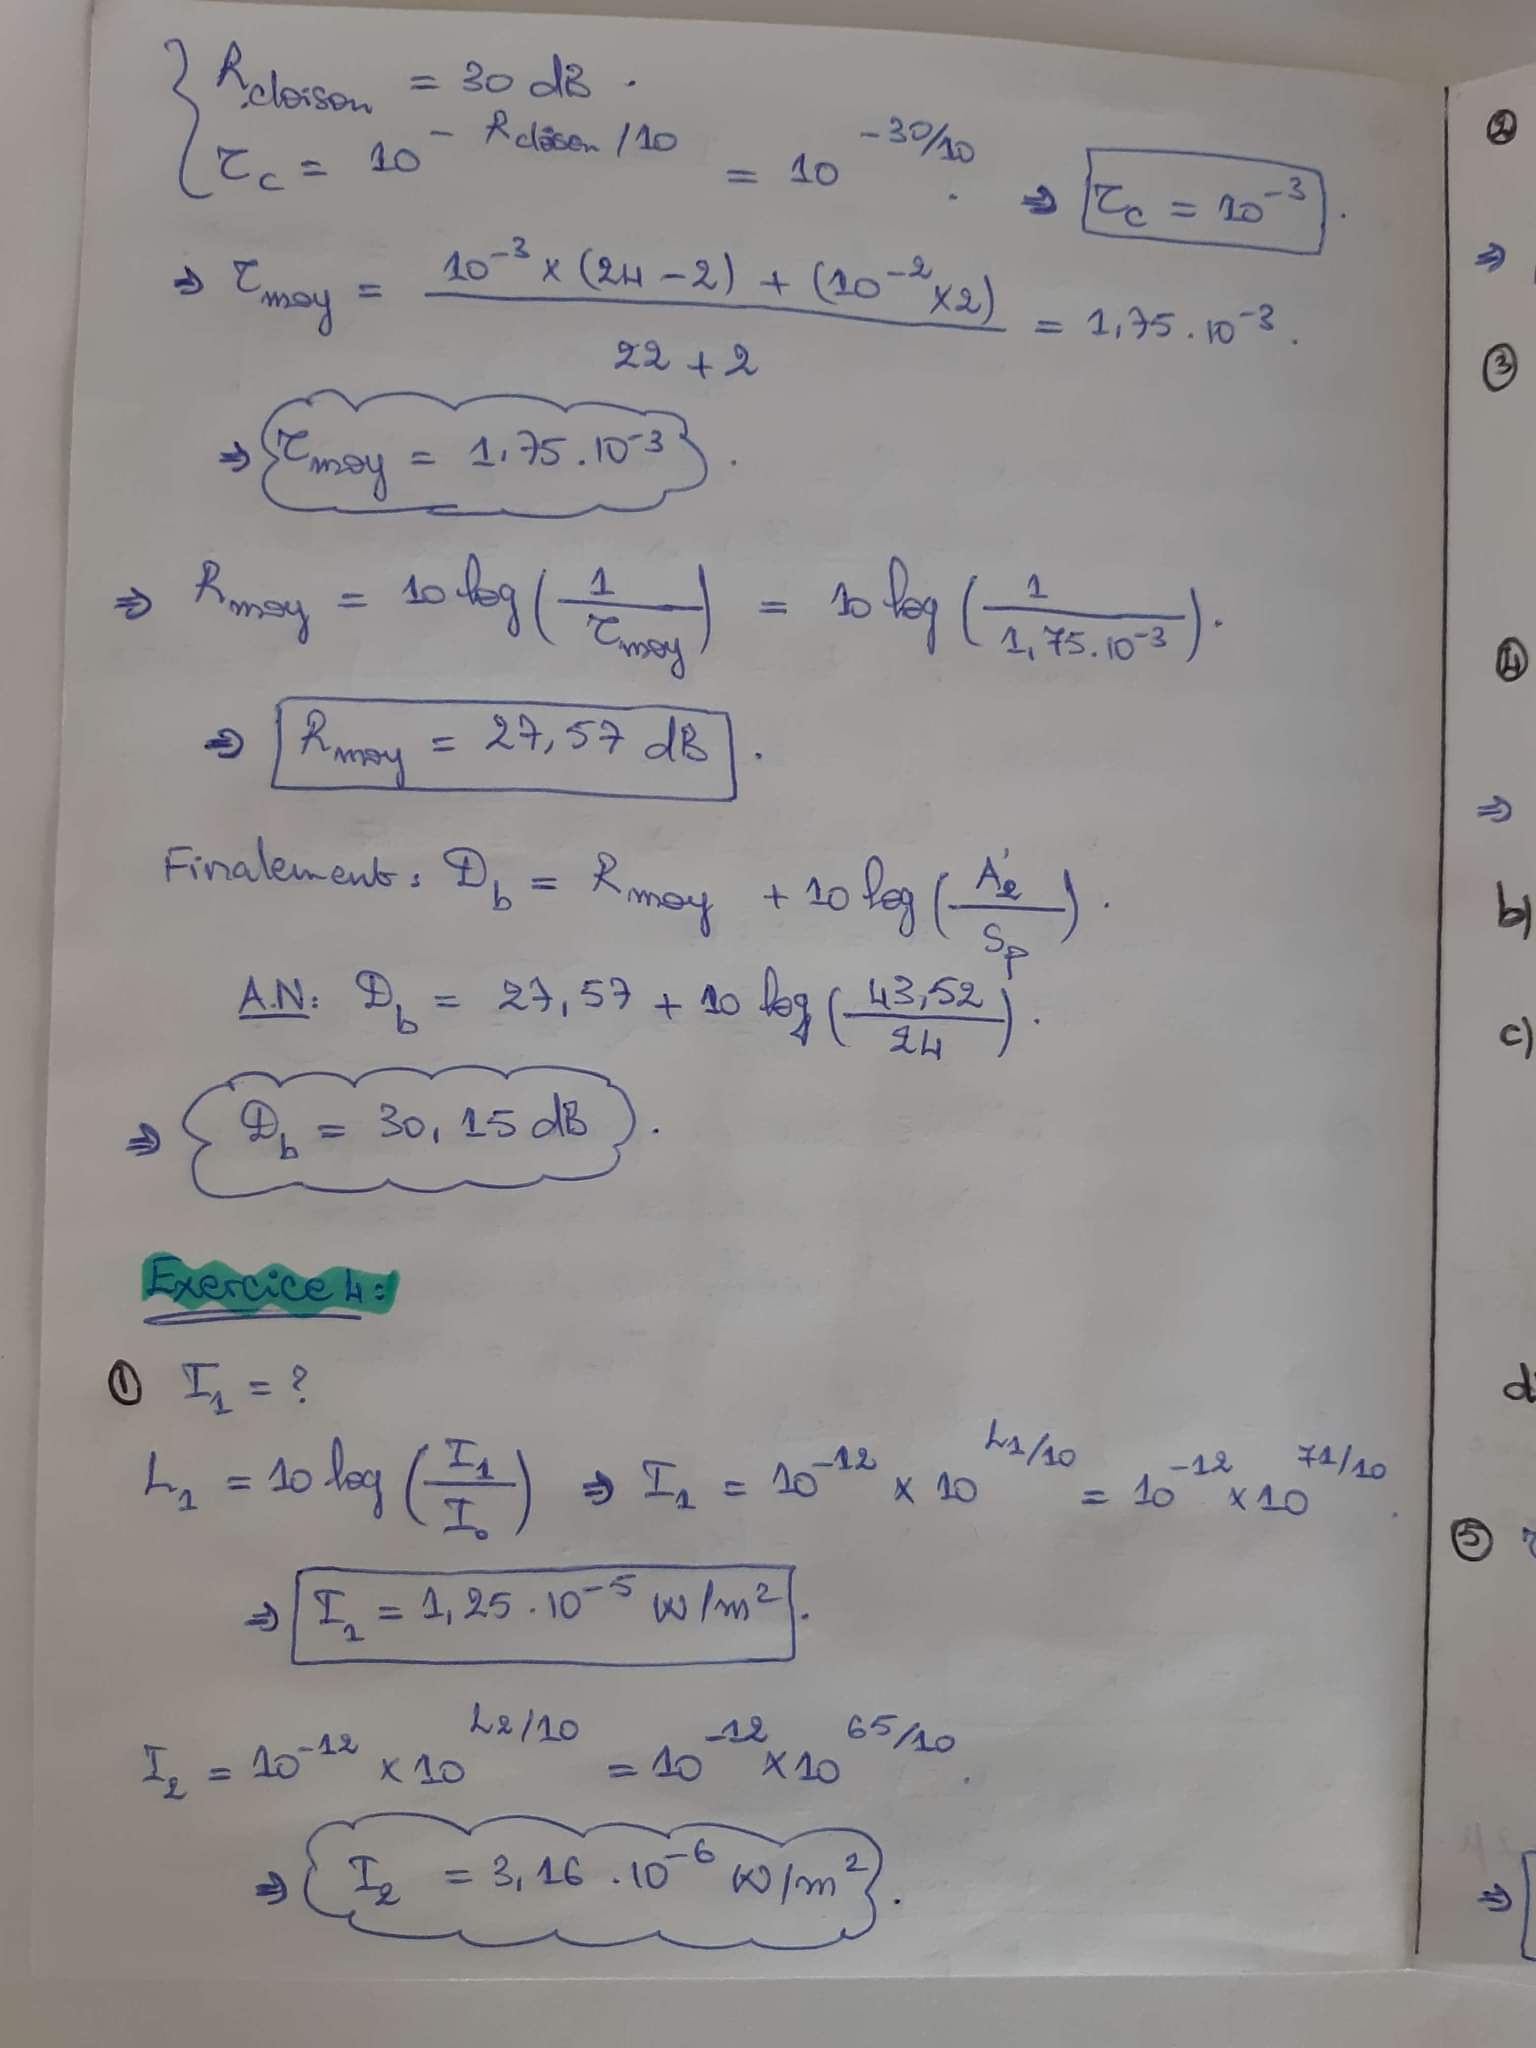 R_cloison = 30 dB.
τ_c = 10^(-R_cloison/10) = 10^(-30/10). ⇒ τ_c = 10^-3.
⇒ τ_moy = (10^-3 × (24-2) + (10^-2 × 2)) / (22+2) = 1,75.10^-3.
⇒ τ_moy = 1,75.10^-3.
⇒ R_moy = 10 log(1/τ_moy) = 10 log(1/1,75.10^-3).
⇒ R_moy = 27,57 dB.
Finalement: D_b = R_moy + 10 log(A'_2/S_p).
A.N: D_b = 27,57 + 10 log(43,52/24).
⇒ D_b = 30,15 dB.
Exercice 4:
① I_1 = ?
L_1 = 10 log(I_1/I_0) ⇒ I_1 = 10^-12 × 10^(L1/10) = 10^-12 × 10^(71/10).
⇒ I_1 = 1,25.10^-5 W/m².
I_2 = 10^-12 × 10^(L2/10) = 10^-12 × 10^(65/10).
⇒ I_2 = 3,16.10^-6 W/m².
②
⇒
③
④
⇒
b)
c)
⑤
⇒